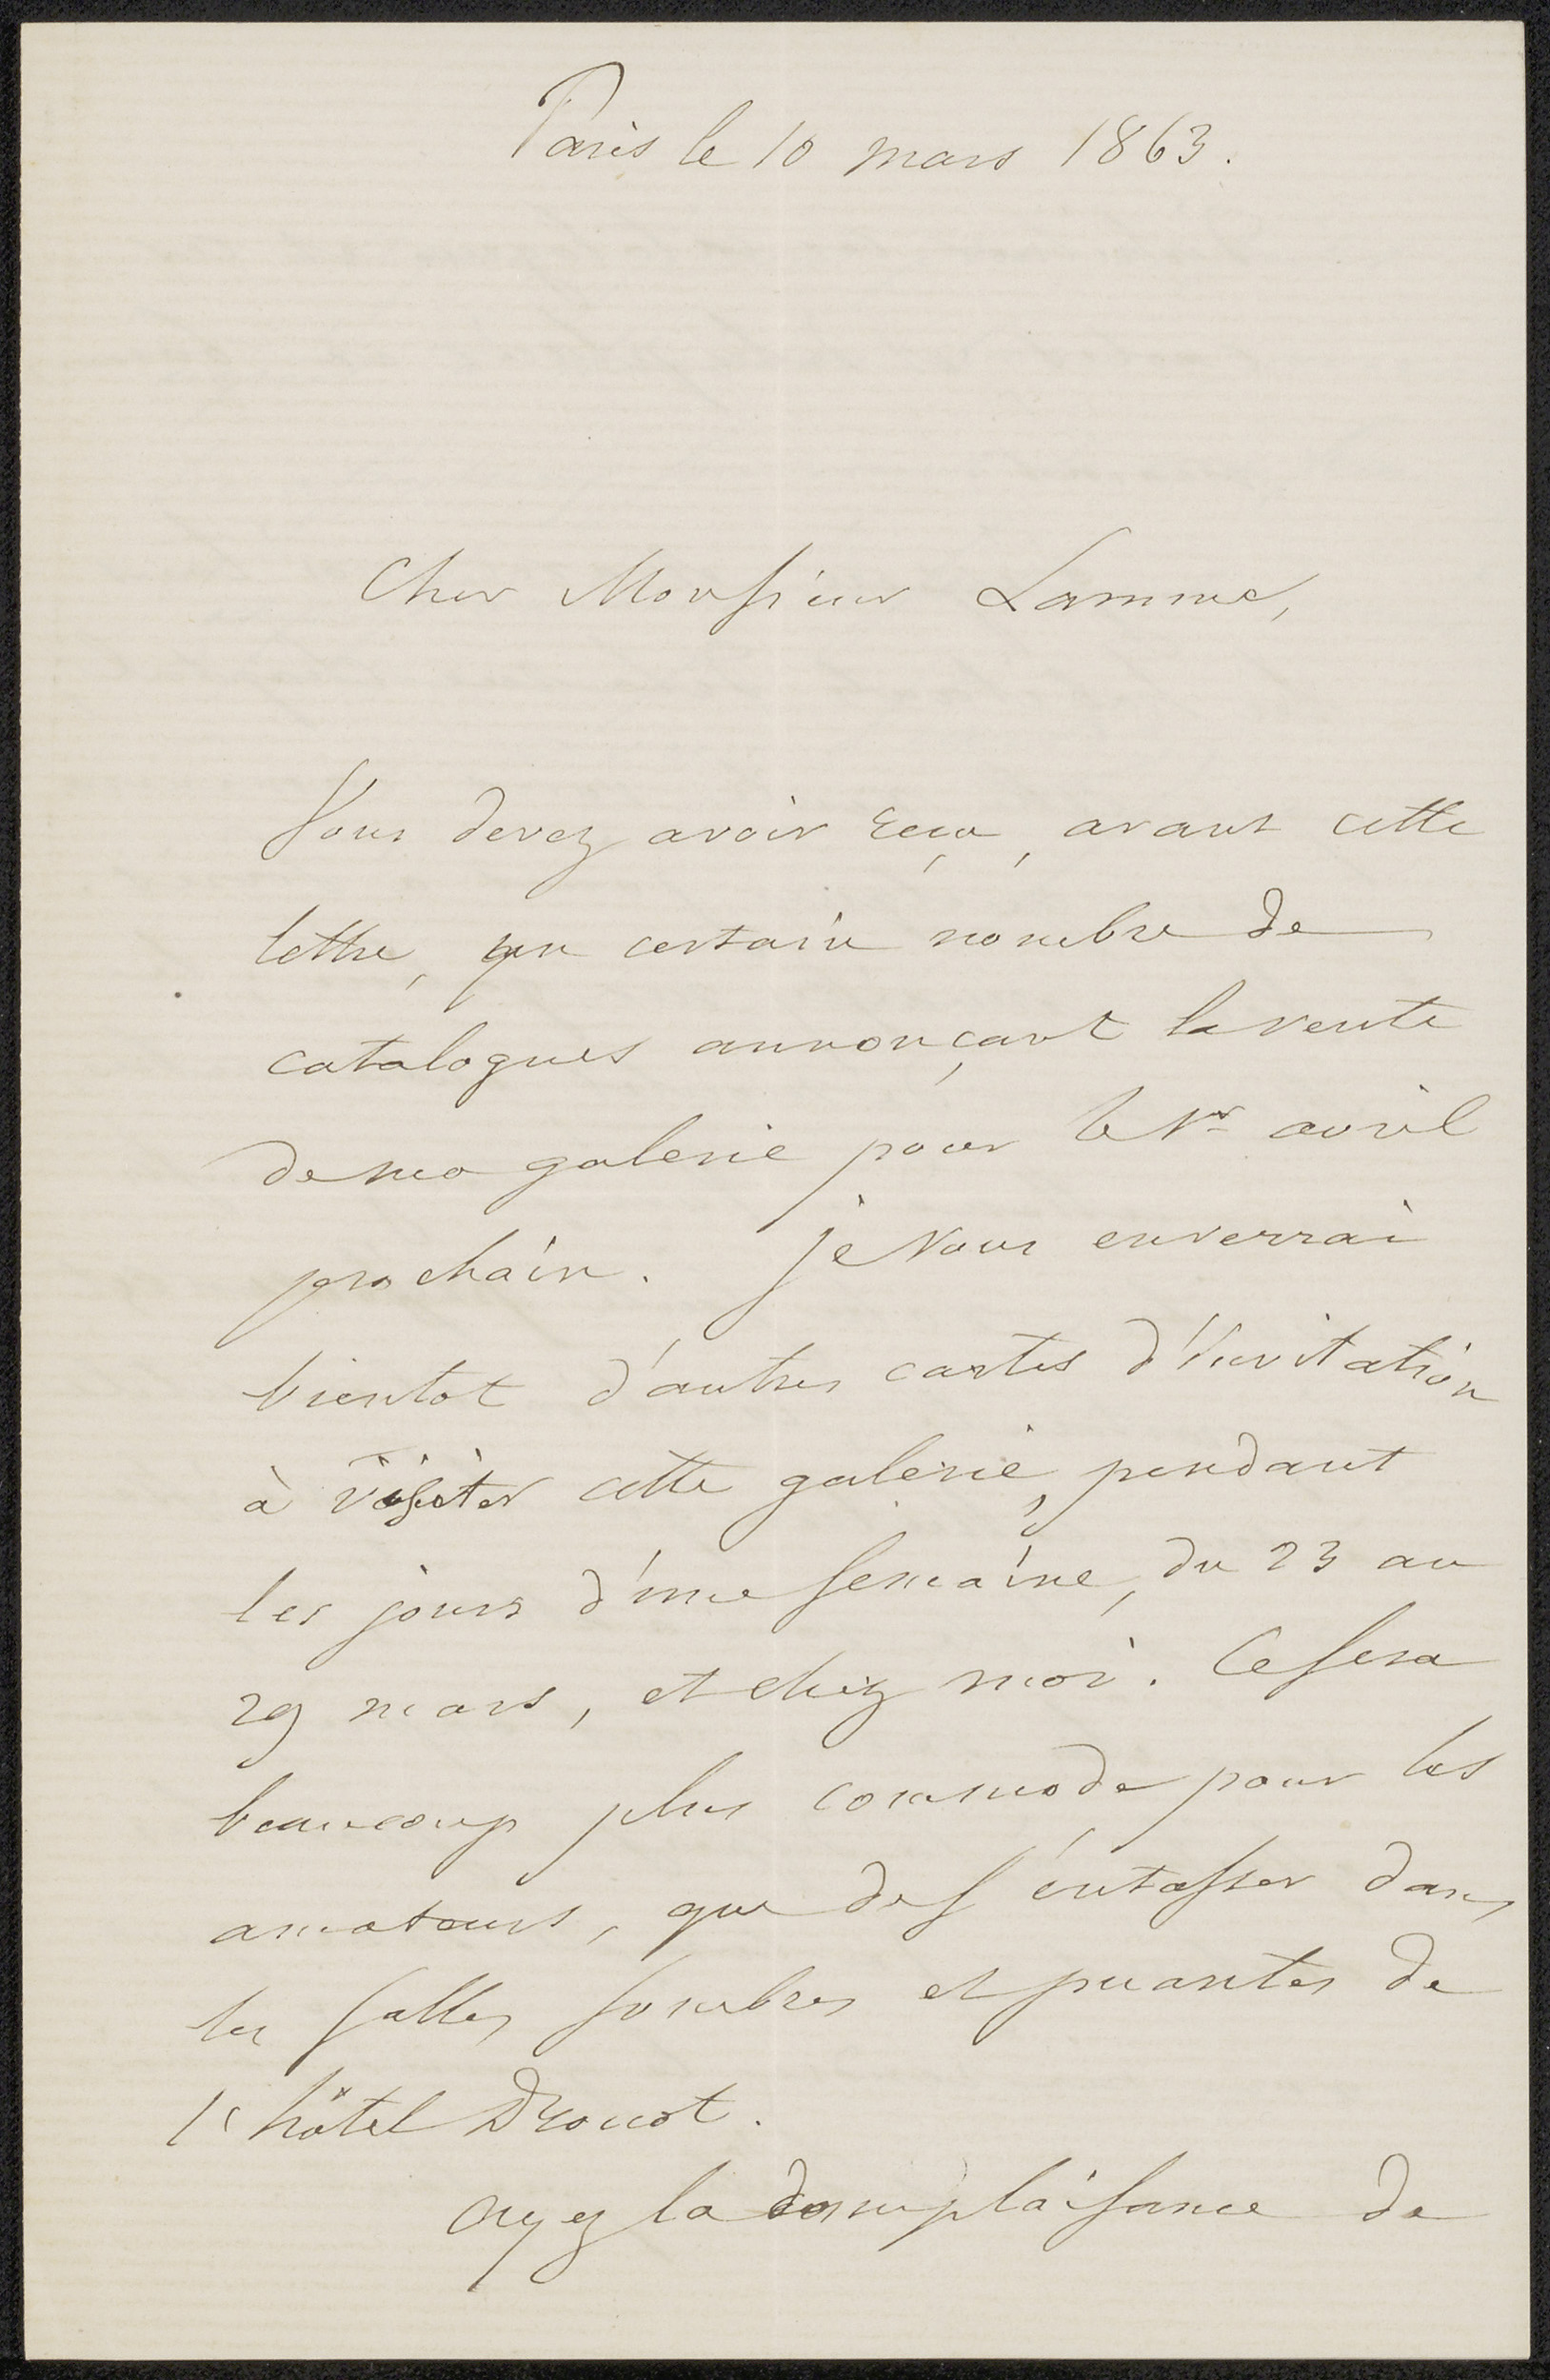 Paris le 10 mars 1863.
Cher Monsieur Lamme,
Vous devez avoir reçu, avant cette
lettre, un certain nombre de
catalogues annonçant la vente
de ma galerie pour le 1er avril
prochain. je vous enverrai
bientot d'autres cartes d'invitation
à visiter cette galerie, pendant
les jours d'une semaine, du 23 au
29 mars, et chez moi. Ce sera
beaucoup plus commode pour les
amateurs, que de s'entasser dans
les salles sombres et puantes de
l'hôtel Drouot.
ayez la complaisance de